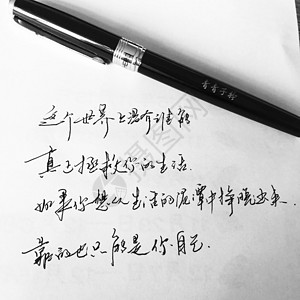 这个世界上没有谁能
真正拯救你的生活.
如果你想从生活的泥潭中挣脱出来.
靠的也只能是你自己.